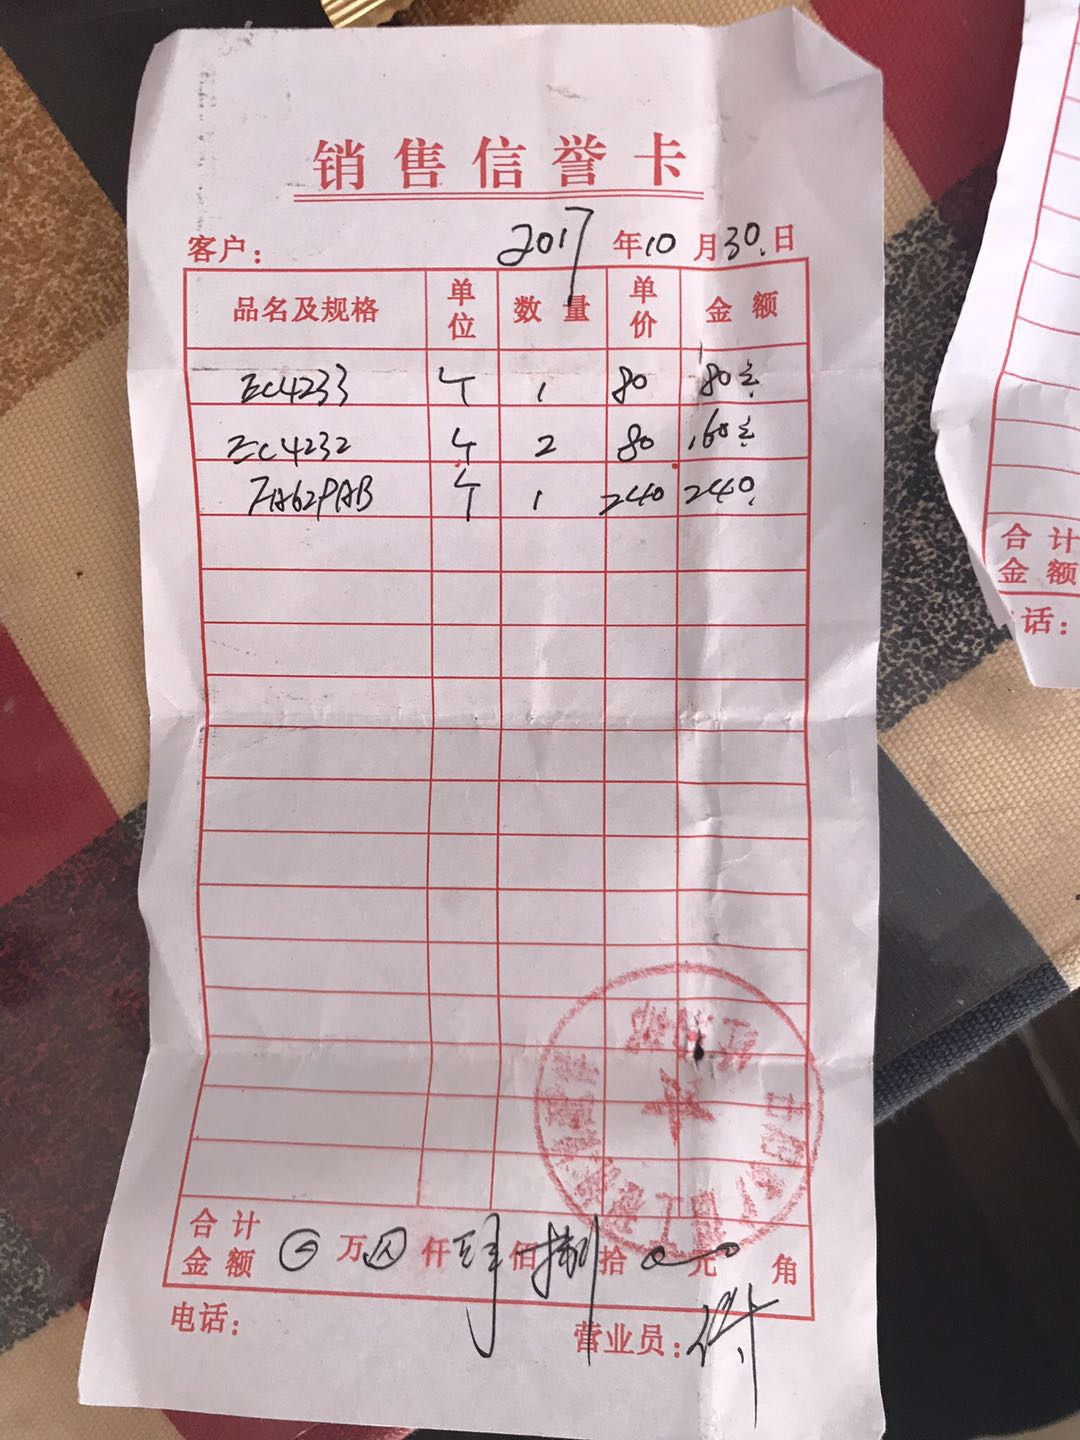 销售信誉卡
客户： 2017年10月30日
品名及规格 单位 数量 单价 金额
EC4233 个 1 80 80元
EC4232 个 2 80 160元
FA62PAB 个 1 240 240
合计金额 万 仟 肆佰捌拾 元 角
电话： 营业员：
合计
金额
话：